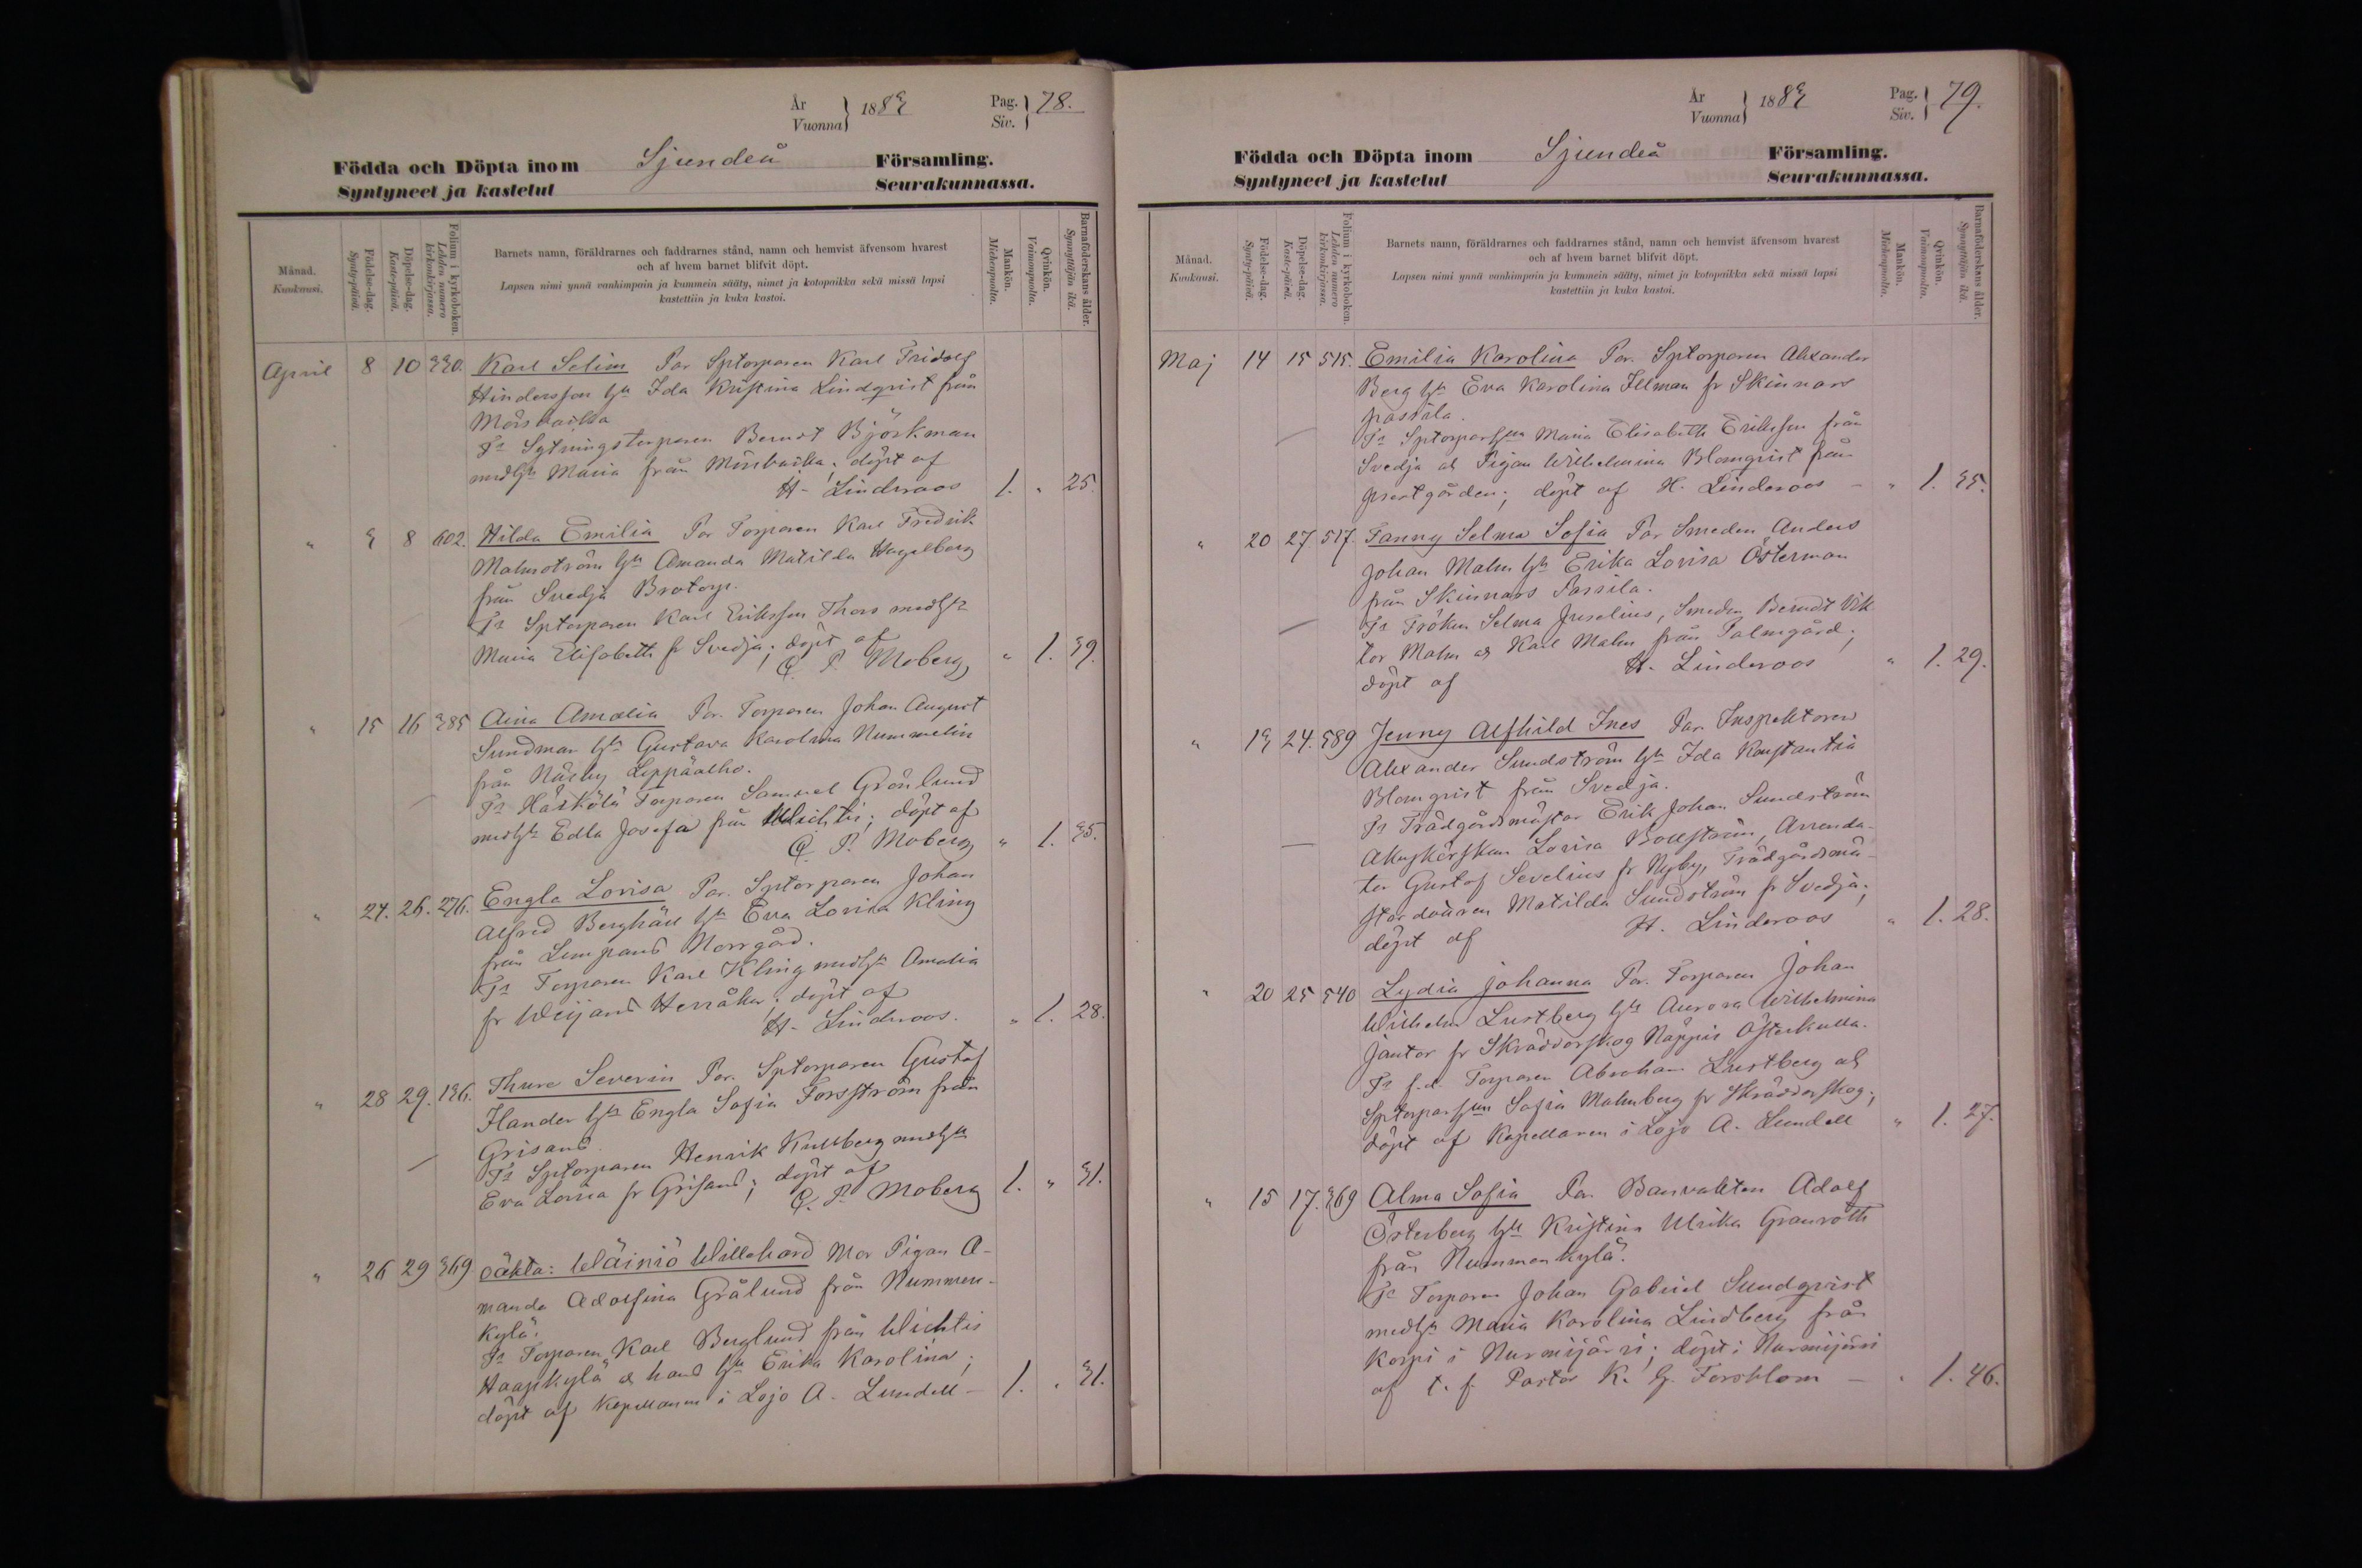 År
Vuonna } 1883
Pag.
Siv. } 78.
Födda och Döpta inom Sjundeå Församling.
Syntyneet ja kastetut Seurakunnassa.
Månad.
Kuukausi.
Födelse-dag.
Synty-päivä.
Döpelse-dag.
Kaste-päivä.
Folium i kyrkoboken.
Lehden numero kirkonkirjassa.
Barnets namn, föräldrarnes och faddrarnes stånd, namn och hemvist äfvensom hvarest
och af hvem barnet blifvit döpt.
Lapsen nimi ynnä vanhimpain ja kummein sääty, nimet ja kotopaikka sekä missä lapsi
kastettiin ja kuka kastoi.
Mankön.
Miehenpuolta.
Qvinkön.
Vaimonpuolta.
Barnaföderskans ålder.
Synnyttäjän ikä.
April 8 10 330. Karl Selim Par Sptorparen Karl Fridolf
Hindersson hu Ida Kristina Lindqvist från
Mörsbacka
Fr Sytningstorparen Berndt Björkman
med hu Maria från Mörsbacka; döpt af
H. Linderoos 1. " 25.
" 3 8 602. Hilda Emilia Par Torparen Karl Fredrik
Malmström hu Amanda Matilda Hagelberg
från Svedja Brotorp.
Fr Sptorparen Karl Eriksson Thors med hu
Maria Elisabeth fr Svedja; döpt af
C. P. Moberg " 1. 39.
" 15 16 385 Aina Amalia Par. Torparen Johan August
Sundman hu Gustava Karolina Nummelin
från Näsby Leppäalho.
Fr Härkölä Torparen Samuel Grönlund
med hu Edla Josefa från Wichtis; döpt af
C. P. Moberg " 1. 35.
" 24. 26. 276. Engla Lovisa Par. Sptorparen Johan
Alfred Berghäll hu Eva Lovisa Kling
från Lempans Norrgård.
Fr Torparen Karl Kling med hu Amalia
fr Weijans Herråker; döpt af
H. Linderoos. " 1. 28.
" 28 29. 136. Thure Severin Par. Sptorparen Gustaf
Flander hu Engla Sofia Forsström från
Grisans
Fr Sptorparen Henrik Kullberg med hu
Eva Lovisa fr Grisans; döpt af
C. P. Moberg 1. " 31.
" 26 29 369 oäkta: Wäiniö Willehard Mor Pigan A-
manda Adolfina Grålund från Nummen-
kylä.
Fr Torparen Karl Berglund från Wichtis
Haapkylä o hans hu Erika Karolina;
döpt af Kapellanen i Lojo A. Lundell - 1. " 31.
År
Vuonna } 1883
Pag.
Siv. } 79.
Födda och Döpta inom Sjundeå Församling.
Syntyneet ja kastetut Seurakunnassa.
Månad.
Kuukausi.
Födelse-dag.
Synty-päivä.
Döpelse-dag.
Kaste-päivä.
Folium i kyrkoboken.
Lehden numero kirkonkirjassa.
Barnets namn, föräldrarnes och faddrarnes stånd, namn och hemvist äfvensom hvarest
och af hvem barnet blifvit döpt.
Lapsen nimi ynnä vanhimpain ja kummein sääty, nimet ja kotopaikka sekä missä lapsi
kastettiin ja kuka kastoi.
Mankön.
Miehenpuolta.
Qvinkön.
Vaimonpuolta.
Barnaföderskans ålder.
Synnyttäjän ikä.
Maj 14 15 515. Emilia Karolina Par. Sptorparen Alexander
Berg hu Eva Karolina Illman fr Skinnars
Passila.
Fr Sptorparhun Maria Elisabeth Eriksson från
Svedja o Pigan Wilhelmina Blomqvist från
Prestgården; döpt af H. Linderoos - " 1. 35.
" 20 27 517. Fanny Selma Sofia Par Smeden Anders
Johan Malm hu Erika Lovisa Österman
från Skinnars Passila.
Fr Fröken Selma Juselius, Smeden Berndt Vik-
tor Malm o Karl Malm från Palmgård;
döpt af H. Linderoos " 1. 29.
" 13 24. 589 Jenny Alfhild Ines Par Inspektoren
Alexander Sundström hu Ida Konstantia
Blomqvist från Svedja.
Fr Trädgårdsmästar Erik Johan Sundström
Akuschörskan Lovisa Bollström, Arrenda-
tor Gustaf Sevelius fr Nyby, Trädgårdsmä-
star dottren Matilda Sundström fr Svedja;
döpt af H. Linderoos " 1. 28.
" 20 25 540 Lydia Johanna Par. Torparen Johan
Wilhelm Lustberg hu Aurora Wilhelmina
Jantor fr Skräddarskog Näppis Österkulla.
Fr f.d. Torparen Abraham Lustberg o
Sptorparhun Sofia Malmberg fr Skräddarskog;
döpt af Kapellanen i Lojo A. Lundell " 1. 27.
" 15 17. 369 Alma Sofia Par. Banvakten Adolf
Österberg hu Kristina Ulrika Granroth
från Nummenkylä.
Fr Torparen Johan Gabriel Sundqvist
med hu Maria Karolina Lindberg från
Korpi i Nurmijärvi; döpt i Nurmijärvi
af t. f. Pastor K. G. Forsblom - " 1. 46.